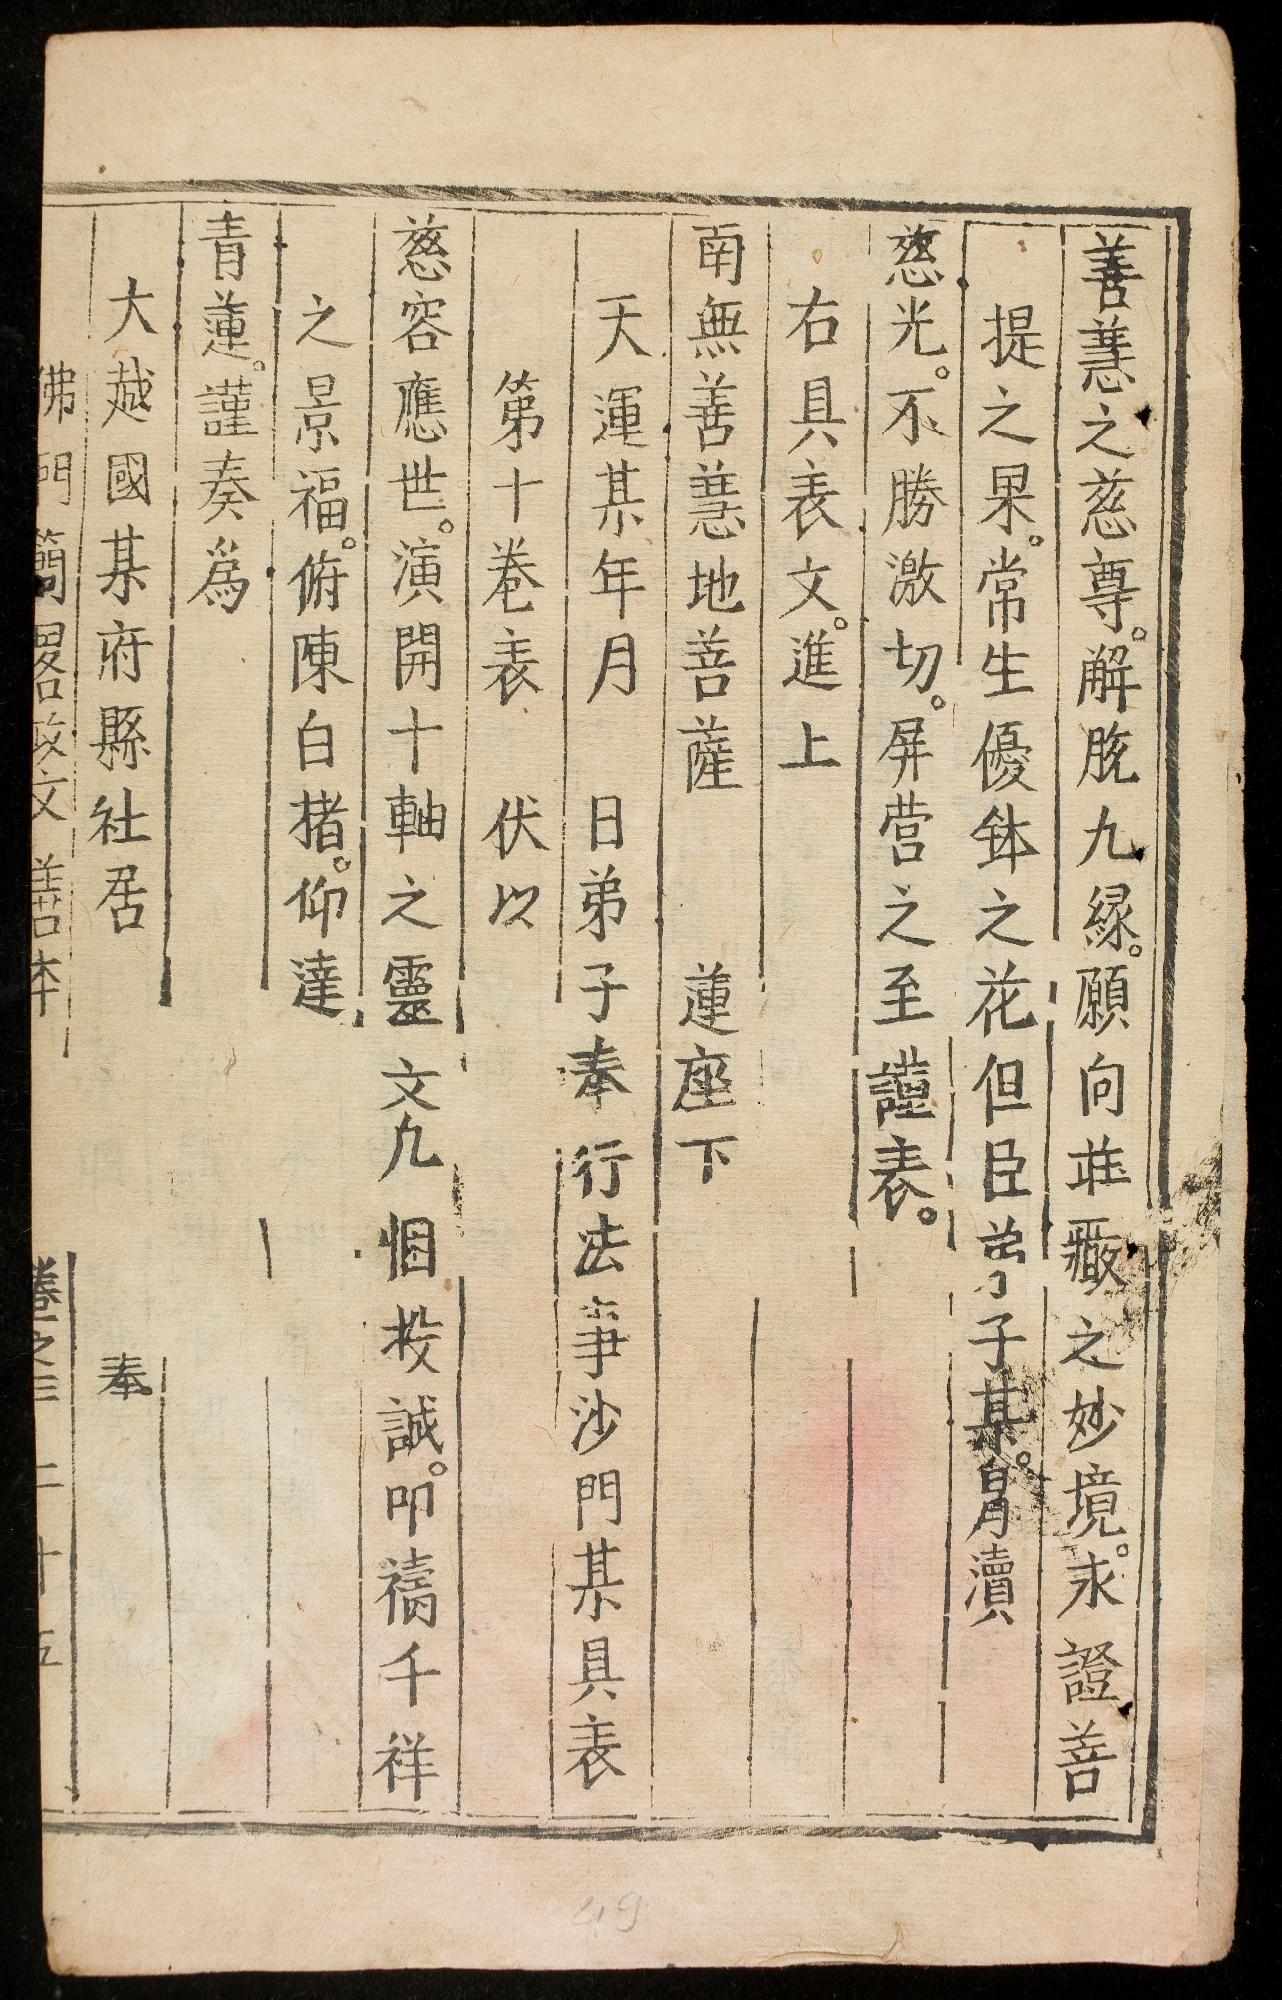 善慧之慈尊。解脫九緣。願向莊嚴之妙境。求證菩
提之果。常生優鉢之花但臣弟子某。冐瀆
慈光。不勝激切。屏营之至謹表。
右具表文。進上
南無善慧地菩薩 蓮座下
天運某年月 日弟子奉行法事沙門某具表
第十卷表 伏以
慈容應世。演開十軸之靈文凡悃投誠。叩禱千祥
之景福。俯陳白楮。仰達
青蓮。謹奏爲
大越國某府縣社居 奉
佛門簡畧政文善本 卷之三 二十五
49